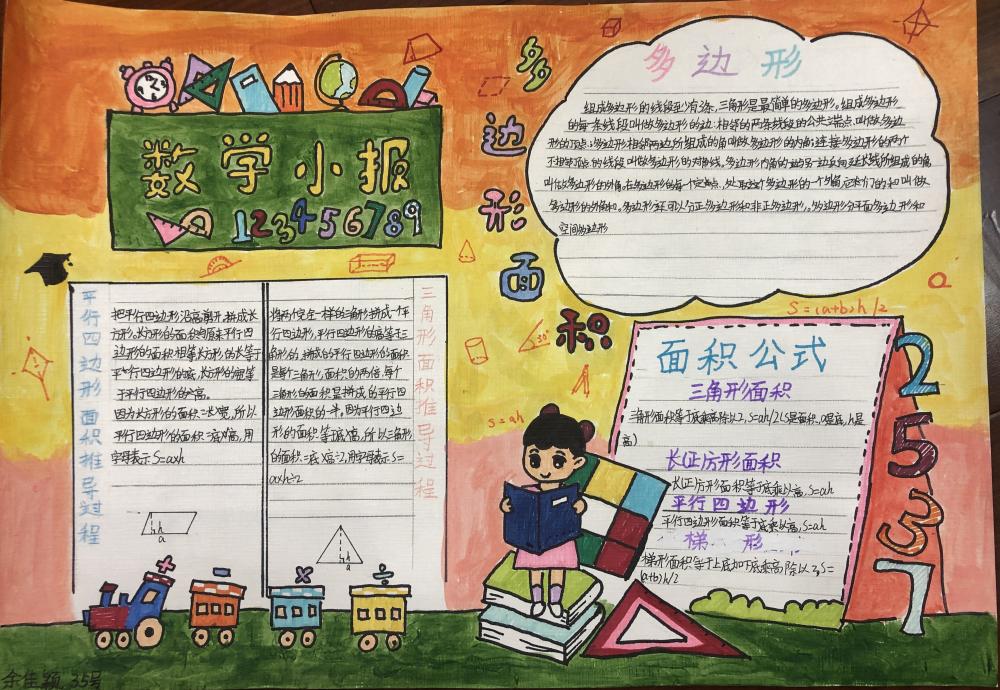 数学小报
123456789
多边形面积
多边形
组成多边形的线段至少有3条,三角形是最简单的多边形。组成多边形
的每一条线段叫做多边形的边,相邻的两条线段的公共端点叫做多边
形的顶点,多边形相邻两边所组成的角叫做多边形的内角,连接多边形的两个
不相邻顶点的线段叫做多边形的对角线。多边形内角的一边与另一边反向延长线所组成的角
叫做多边形的外角。在多边形的每一个顶点处取这个多边形的一个外角,它们的和叫做
多边形的外角和。多边形还可以分正多边形和非正多边形。多边形分平面多边形和
空间多边形
平行四边形面积推导过程
把平行四边形沿高剪开,拼成长
方形。长方形的面积与原来平行四
边形的面积相等,长方形的长等于
平行四边形的底,长方形的宽等
于平行四边形的高。
因为长方形的面积=长×宽,所以
平行四边形的面积=底×高,用
字母表示S=a×h
h
a
三角形面积推导过程
将两个完全一样的三角形拼成一个平
行四边形,平行四边形的高等于三
角形的,拼成的平行四边形的面积
是每个三角形面积的两倍,每个
三角形的面积是拼成的平行四
边形面积的一半,因为平行四边
形的面积等于底×高,所以三角形
的面积=底×高÷2,用字母表示S=
a×h÷2
h
a
S=(a+b)×h/2
30°
S=ah
面积公式
三角形面积
三角形面积等于底乘高除以2,S=ah/2(S是面积,a是底,h是
高)
长(正)方形面积
长(正)方形面积等于底乘以高,S=ah
平行四边形
平行四边形面积等于底乘以高,S=ah
梯形
梯形面积等于上底加下底乘高除以2,S=
(a+b)h/2
2
5
3
7
+
-
×
÷
余佳颖 35号